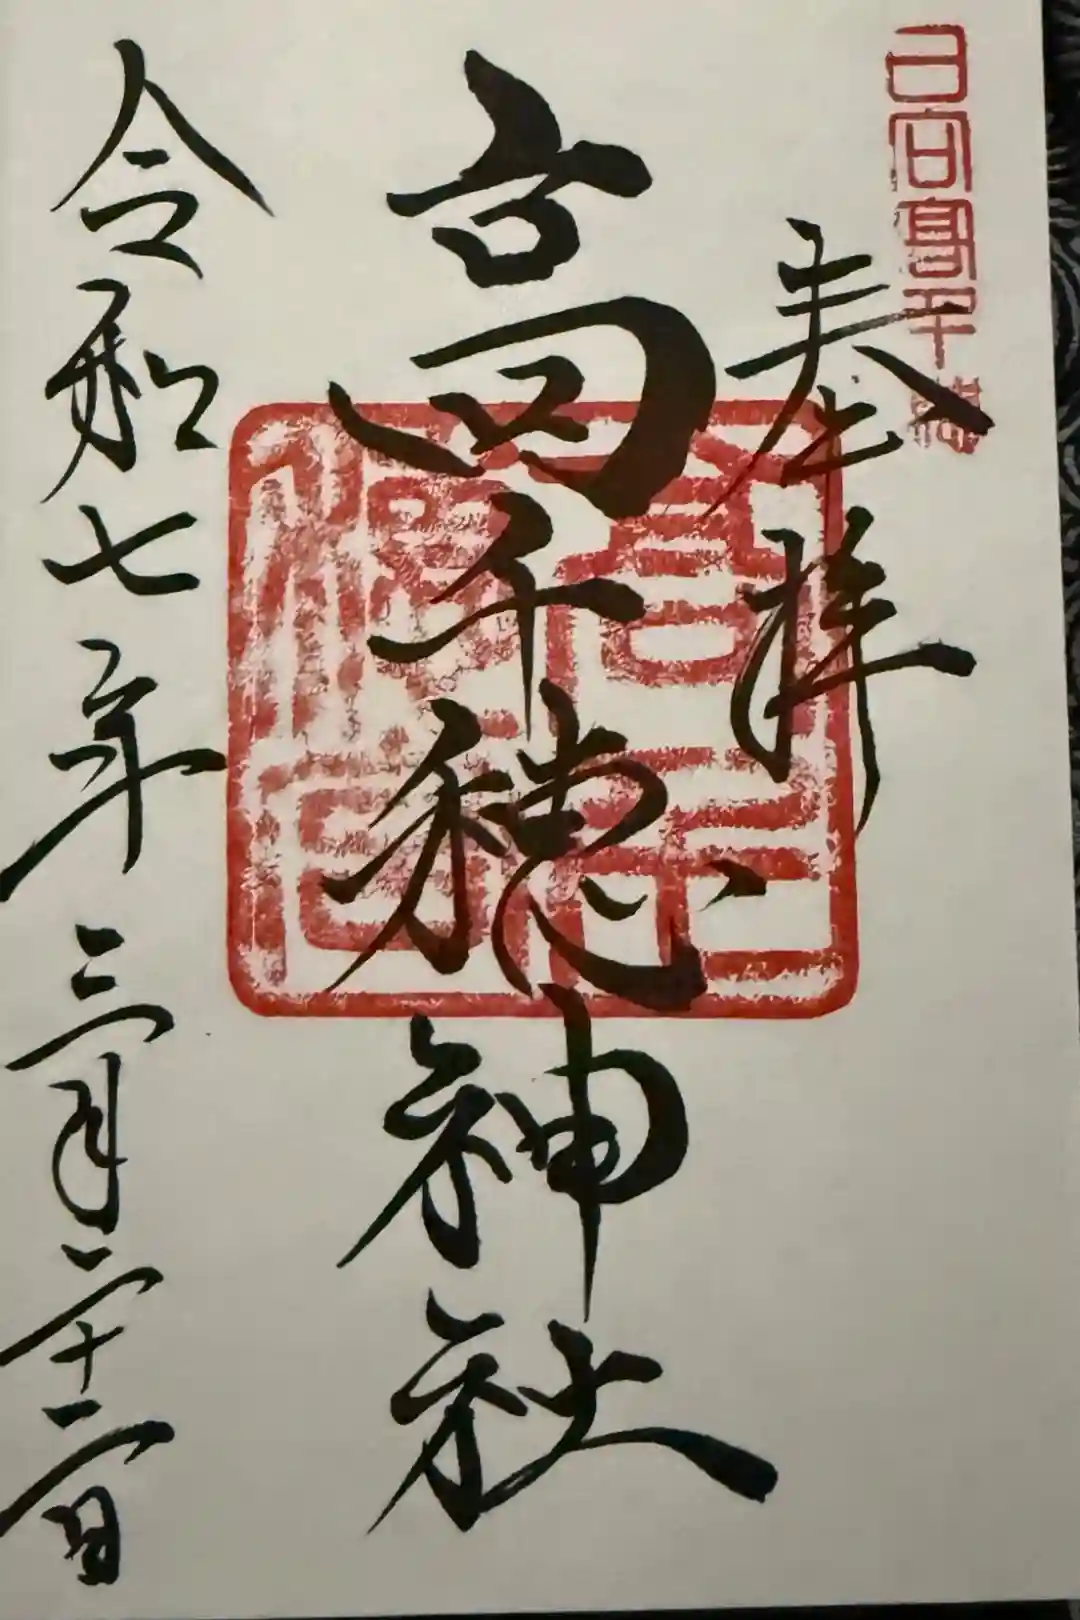 日向高千穂
奉拝
高千穂神社
令和七年三月二十二日